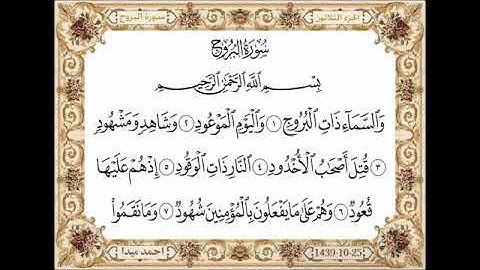 الجزء الثلاثون
سورة البروج
سُورَةُ البُرُوجِ
بِسْمِ اللَّهِ الرَّحْمَٰنِ الرَّحِيمِ
وَالسَّمَاءِ ذَاتِ الْبُرُوجِ ١ وَالْيَوْمِ الْمَوْعُودِ ٢ وَشَاهِدٍ وَمَشْهُودٍ
٣ قُتِلَ أَصْحَابُ الْأُخْدُودِ ٤ النَّارِ ذَاتِ الْوَقُودِ ٥ إِذْ هُمْ عَلَيْهَا
قُعُودٌ ٦ وَهُمْ عَلَىٰ مَا يَفْعَلُونَ بِالْمُؤْمِنِينَ شُهُودٌ ٧ وَمَا نَقَمُوا
احمد ميدا
1439-10-25